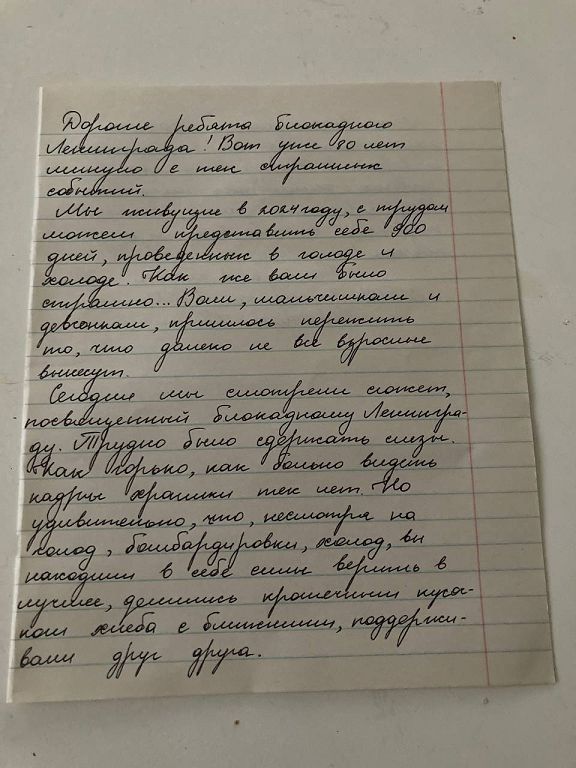 Дорогие ребята блокадного
Ленинграда! Вот уже 80 лет
минуло с тех страшных
событий.
Мы живущие в 2024 году, с трудом
можем представить себе 900
дней, проведенных в голоде и
холоде. Как же вам было
страшно... Вам, мальчишкам и
девчонкам, пришлось пережить
то, что далеко не все взрослые
вынесут.
Сегодня мы смотрели сюжет,
посвященный блокадному Ленингра-
ду. Трудно было сдержать слезы.
Как горько, как больно видеть
кадры хроники тех лет. Но
удивительно, что, несмотря на
холод, бомбардировки, холод, вы
находили в себе силы верить в
лучшее, делились крошечным куса-
ком хлеба с ближними, поддержи-
вали друг друга.